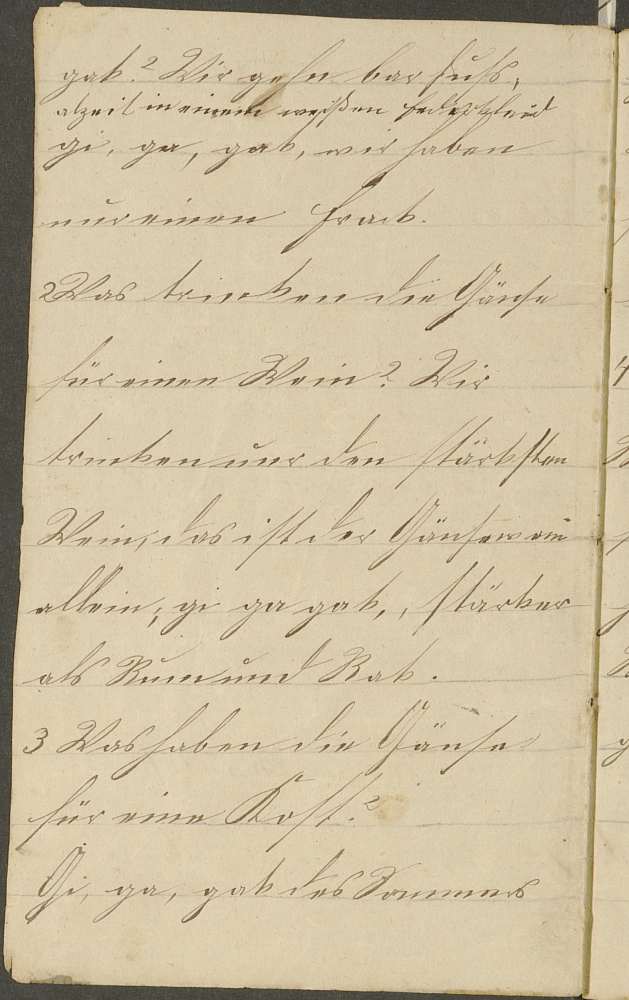 gak.? Wir gehn bar fuß,
alzeit in einem weißen Federkleid
gi, ga, gak, wir haben
nur einen Frack.
2 Was trinken die Gänse
für einen Wein? Wir
trinken nur den stärksten
Wein, das ist der Gänsewein
allein; gi ga gak, stärker
als Rum und Rak.
3 Was haben die Gänse
für eine Kost?
Gi, ga, gak des Sommers
4